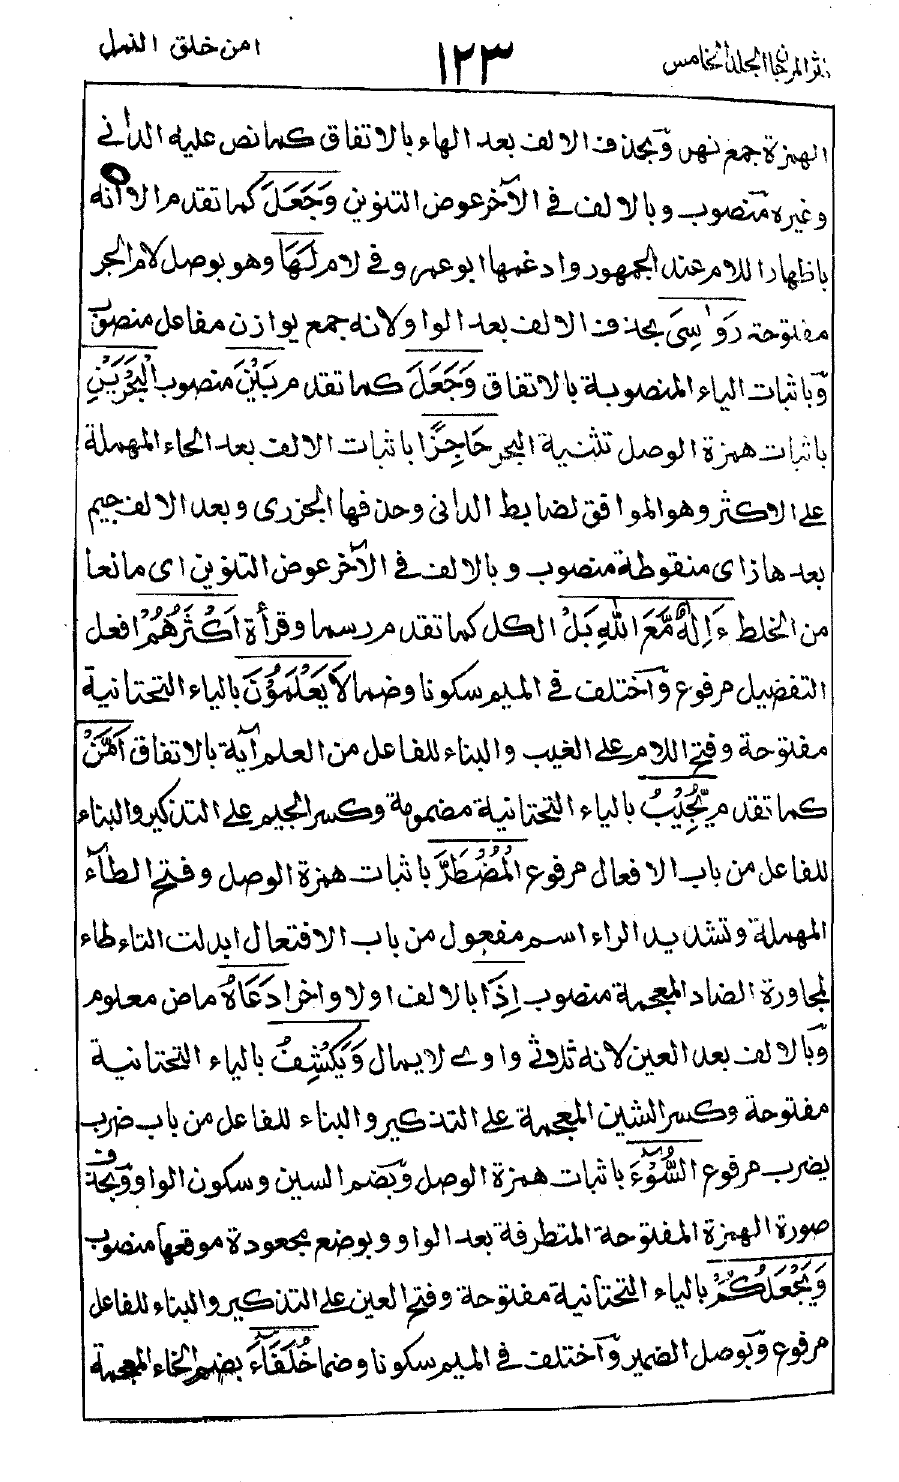 نثر المرجان المجلد الخامس
١٢٣
امن خلق النمل
الهمزة جمع نهر وبحذف الالف بعد الهاء بالاتفاق كما نص عليه الداني
وغيره منصوب وبالالف في الآخر عوض التنوين وَجَعَلَ كما تقدم الا انه
باظهار اللام عند الجمهور وادغمها ابو عمرو في لام لَهَا وهو بوصل لام الجر
مفتوحة رَوٰسِيَ بحذف الالف بعد الواو لانه جمع يوازن مفاعل منصوب
وباثبات الياء المنصوبة بالاتفاق وَجَعَلَ كما تقدم بَيْنَ منصوب الْبَحْرَيْنِ
باثبات همزة الوصل تثنية البحر حَاجِزًا باثبات الالف بعد الحاء المهملة
على الاكثر وهو الموافق لضابط الداني وحذفها الجزري وبعد الالف جيم
بعدها زاى منقوطة منصوب وبالالف في الآخر عوض التنوين اى مانعا
من الخلط ءَاِلٰهٌ مَّعَ اللهِ بَلْ الكل كما تقدم رسما وقرأة اَكْثَرُهُمْ افعل
التفضيل مرفوع واختلف في الميم سكونا وضما لَا يَعْلَمُوْنَ بالياء التحتانية
مفتوحة وفتح اللام على الغيب والبناء للفاعل من العلم آية بالاتفاق اَمَّنْ
كما تقدم يُّجِيْبُ بالياء التحتانية مضمومة وكسر الجيم على التذكير والبناء
للفاعل من باب الافعال مرفوع الْمُضْطَرَّ باثبات همزة الوصل وفتح الطاء
المهملة وتشديد الراء اسم مفعول من باب الافتعال ابدلت التاء طاء
لمجاورة الضاد المعجمة منصوب اِذَا بالالف اولا واخرا دَعَاهُ ماض معلوم
وبالالف بعد العين لانه ثلاثي واوي لا يمال وَيَكْشِفُ بالياء التحتانية
مفتوحة وكسر الشين المعجمة على التذكير والبناء للفاعل من باب ضرب
يضرب مرفوع السُّوْٓءَ باثبات همزة الوصل وبضم السين وسكون الواو وبحذف
صورة الهمزة المفتوحة المتطرفة بعد الواو وبوضع مجعودة موقعها منصوب
وَيَجْعَلُكُمْ بالياء التحتانية مفتوحة وفتح العين على التذكير والبناء للفاعل
مرفوع وبوصل الضمير واختلف في الميم سكونا وضما خُلَفَآءَ بضم الخاء المعجمة